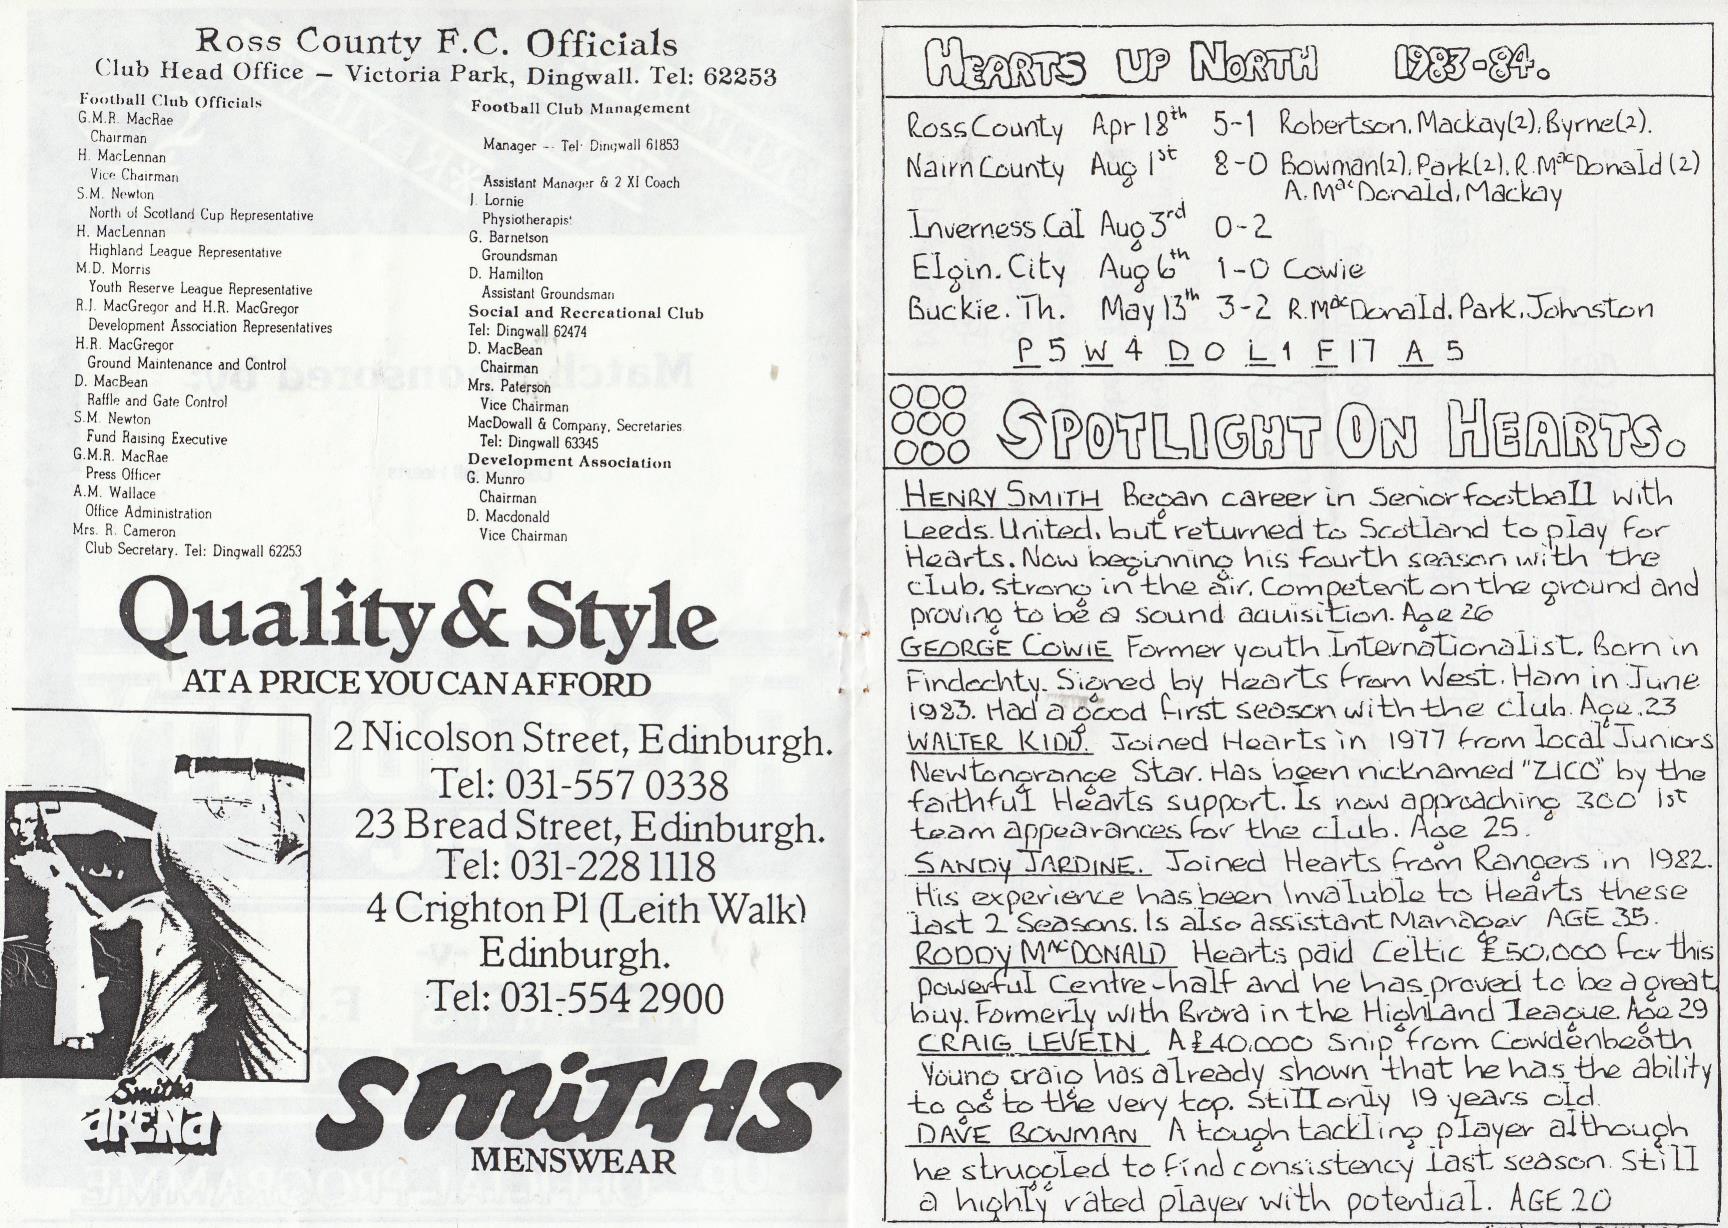 Ross County F.C. Officials
Club Head Office – Victoria Park, Dingwall. Tel: 62253
Football Club Officials
G.M.R. MacRae
Chairman
H. MacLennan
Vice Chairman
S.M. Newton
North of Scotland Cup Representative
H. MacLennan
Highland League Representative
M.D. Morris
Youth Reserve League Representative
R.J. MacGregor and H.R. MacGregor
Development Association Representatives
H.R. MacGregor
Ground Maintenance and Control
D. MacBean
Raffle and Gate Control
S.M. Newton
Fund Raising Executive
G.M.R. MacRae
Press Officer
A.M. Wallace
Office Administration
Mrs. R. Cameron
Club Secretary. Tel: Dingwall 62253
Football Club Management
Manager -- Tel: Dingwall 61853
Assistant Manager & 2 XI Coach
J. Lornie
Physiotherapist
G. Barnetson
Groundsman
D. Hamilton
Assistant Groundsman
Social and Recreational Club
Tel: Dingwall 62474
D. MacBean
Chairman
Mrs. Paterson
Vice Chairman
MacDowall & Company, Secretaries
Tel: Dingwall 63345
Development Association
G. Munro
Chairman
D. Macdonald
Vice Chairman
Quality & Style
AT A PRICE YOU CAN AFFORD
2 Nicolson Street, Edinburgh.
Tel: 031-557 0338
23 Bread Street, Edinburgh.
Tel: 031-228 1118
4 Crighton Pl (Leith Walk)
Edinburgh.
Tel: 031-554 2900
Smiths
ARENA
SMITHS
MENSWEAR
HEARTS UP NORTH 1983-84.
Ross County Apr 18th 5-1 Robertson, Mackay(2), Byrne(2).
Nairn County Aug 1st 8-0 Bowman(2), Park(2), R. MacDonald (2)
A. MacDonald, Mackay
Inverness Cal Aug 3rd 0-2
Elgin. City Aug 6th 1-0 Cowie
Buckie. Th. May 13th 3-2 R. MacDonald, Park, Johnston
P 5 W 4 D 0 L 1 F 17 A 5
SPOTLIGHT ON HEARTS.
HENRY SMITH Began career in Senior football with
Leeds. United, but returned to Scotland to play for
Hearts. Now beginning his fourth season with the
club. Strong in the air. Competent on the ground and
proving to be a sound aquisition. Age 26
GEORGE COWIE Former youth Internationalist. Born in
Findochty. Signed by Hearts from West. Ham in June
1983. Had a good first season with the club. Age. 23
WALTER KIDD. Joined Hearts in 1977 from local Juniors
Newtongrange Star. Has been nicknamed "ZICO" by the
faithful Hearts support. Is now approaching 300 1st
team appearances for the club. Age 25.
SANDY JARDINE. Joined Hearts from Rangers in 1982.
His experience has been Invaluble to Hearts these
last 2 Seasons. Is also assistant Manager AGE 35.
RODDY MacDONALD Hearts paid Celtic £50,000 for this
powerful Centre-half and he has proved to be a great
buy. Formerly with Brora in the Highland League. Age 29
CRAIG LEVEIN A £40,000 Snip from Cowdenbeath
Young craig has already shown that he has the ability
to go to the very top. Still only 19 years old.
DAVE BOWMAN A tough tackling player although
he struggled to find consistency last season. Still
a highly rated player with potential. AGE 20